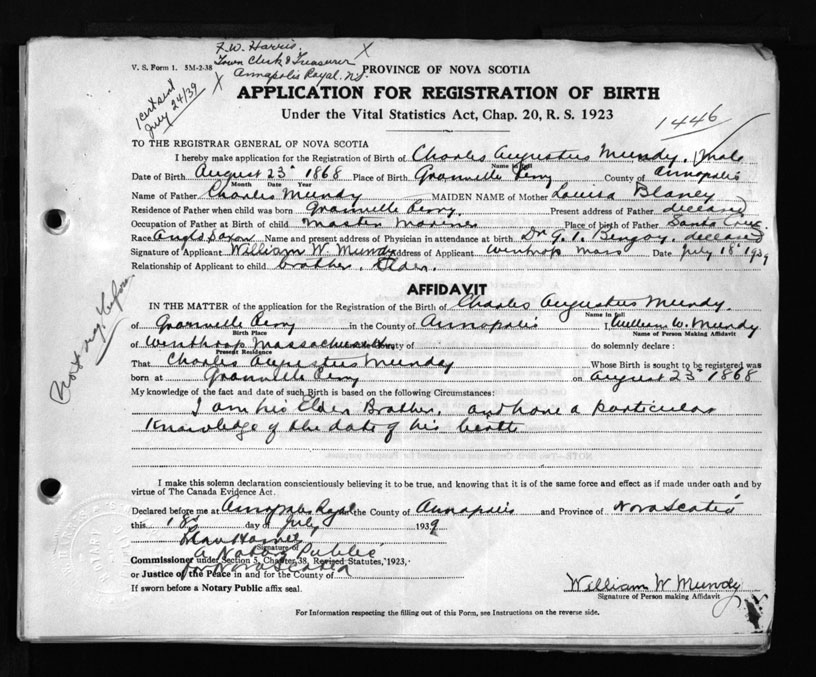 F. W. Harris
Town Clerk & Treasurer
Annapolis Royal, N.S.
V. S. Form 1. 5M-2-38
PROVINCE OF NOVA SCOTIA
APPLICATION FOR REGISTRATION OF BIRTH
Under the Vital Statistics Act, Chap. 20, R. S. 1923
July 24/39
1446
TO THE REGISTRAR GENERAL OF NOVA SCOTIA
I hereby make application for the Registration of Birth of Charles Augustus Mundy. Male
Name in full
Date of Birth August 23d 1868 Place of Birth Granville Ferry County of Annapolis
Month Date Year
Name of Father Charles Mundy MAIDEN NAME of Mother Louisa Blaney
Residence of Father when child was born Granville Ferry. Present address of Father deceased
Occupation of Father at Birth of child Master Mariner Place of birth of Father Santa Cruz
Race Anglo Saxon Name and present address of Physician in attendance at birth Dr deceased
Signature of Applicant William W. Mundy Address of Applicant Winthrop Mass Date July 18 1939
Relationship of Applicant to child brother. Elder.
AFFIDAVIT
IN THE MATTER of the application for the Registration of the Birth of Charles Augustus Mundy.
Name in full
of Granville Ferry in the County of Annapolis I William W. Mundy
Birth Place Name of Person Making Affidavit
of Winthrop Massachusetts County of do solemnly declare:
Present Residence
That Charles Augustus Mundy Whose Birth is sought to be registered was
born at Granville Ferry on August 23d 1868
Not reg. before
My knowledge of the fact and date of such Birth is based on the following Circumstances:
I am his Elder Brother, and have a particular
Knowledge of the date of his birth
I make this solemn declaration conscientiously believing it to be true, and knowing that it is of the same force and effect as if made under oath and by
virtue of The Canada Evidence Act.
Declared before me at Annapolis Royal the County of Annapolis and Province of Nova Scotia
this 18 day of July 1939
Signature of
A Notary Public
Commissioner under Section 5, Chapter 38, Revised Statutes, 1923,
for Nova Scotia
or Justice of the Peace in and for the County of
If sworn before a Notary Public affix seal.
William W Mundy
Signature of Person making Affidavit
For Information respecting the filling out of this Form, see Instructions on the reverse side.